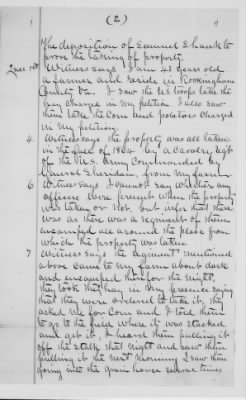 (2)
The deposition of Samuel Shank to
prove the taking of property.
Ques 1st Witness says I am 43 years old
a farmer and reside in Rockingham
County Va. I saw the U.S. troops take the
hay charged in my petition I also saw
them take the corn and potatoes charged
in my petition.
4. Witness says the property was all taken
in the fall of 1864 by a Cavalry regt
of the U.S. army commanded by
General Sheridan, from my farm.
6 Witness says I cannot say whether any
officers were present when the property
was taken or not, but infer that there
was as there was a regiment of them
encamped all around the place from
which the property was taken
7 Witness says the regiment mentioned
above came to my farm about dark
and encamped there for the night,
they took the hay in my presence saying
that they were ordered to take it, they
asked me for corn and I told them
to go to the field where it was stacked
and get it, I heard them pulling it
off the stalk that night and saw them
pulling it the next morning I saw them
going into the grain house several times